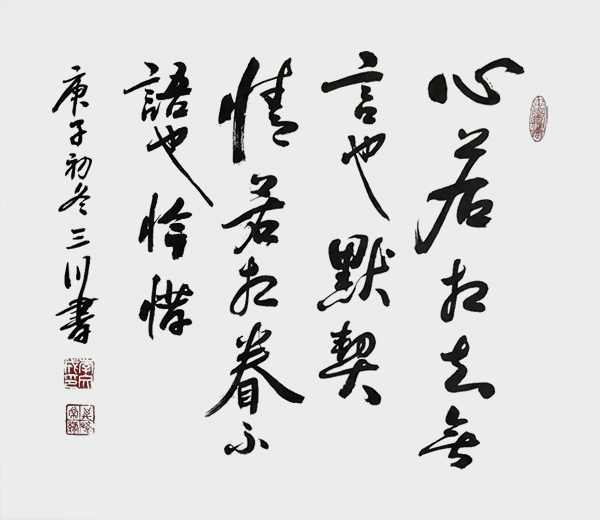 心若相知無
言也默契
情若相眷不
語也怜惜
庚子初冬三川書